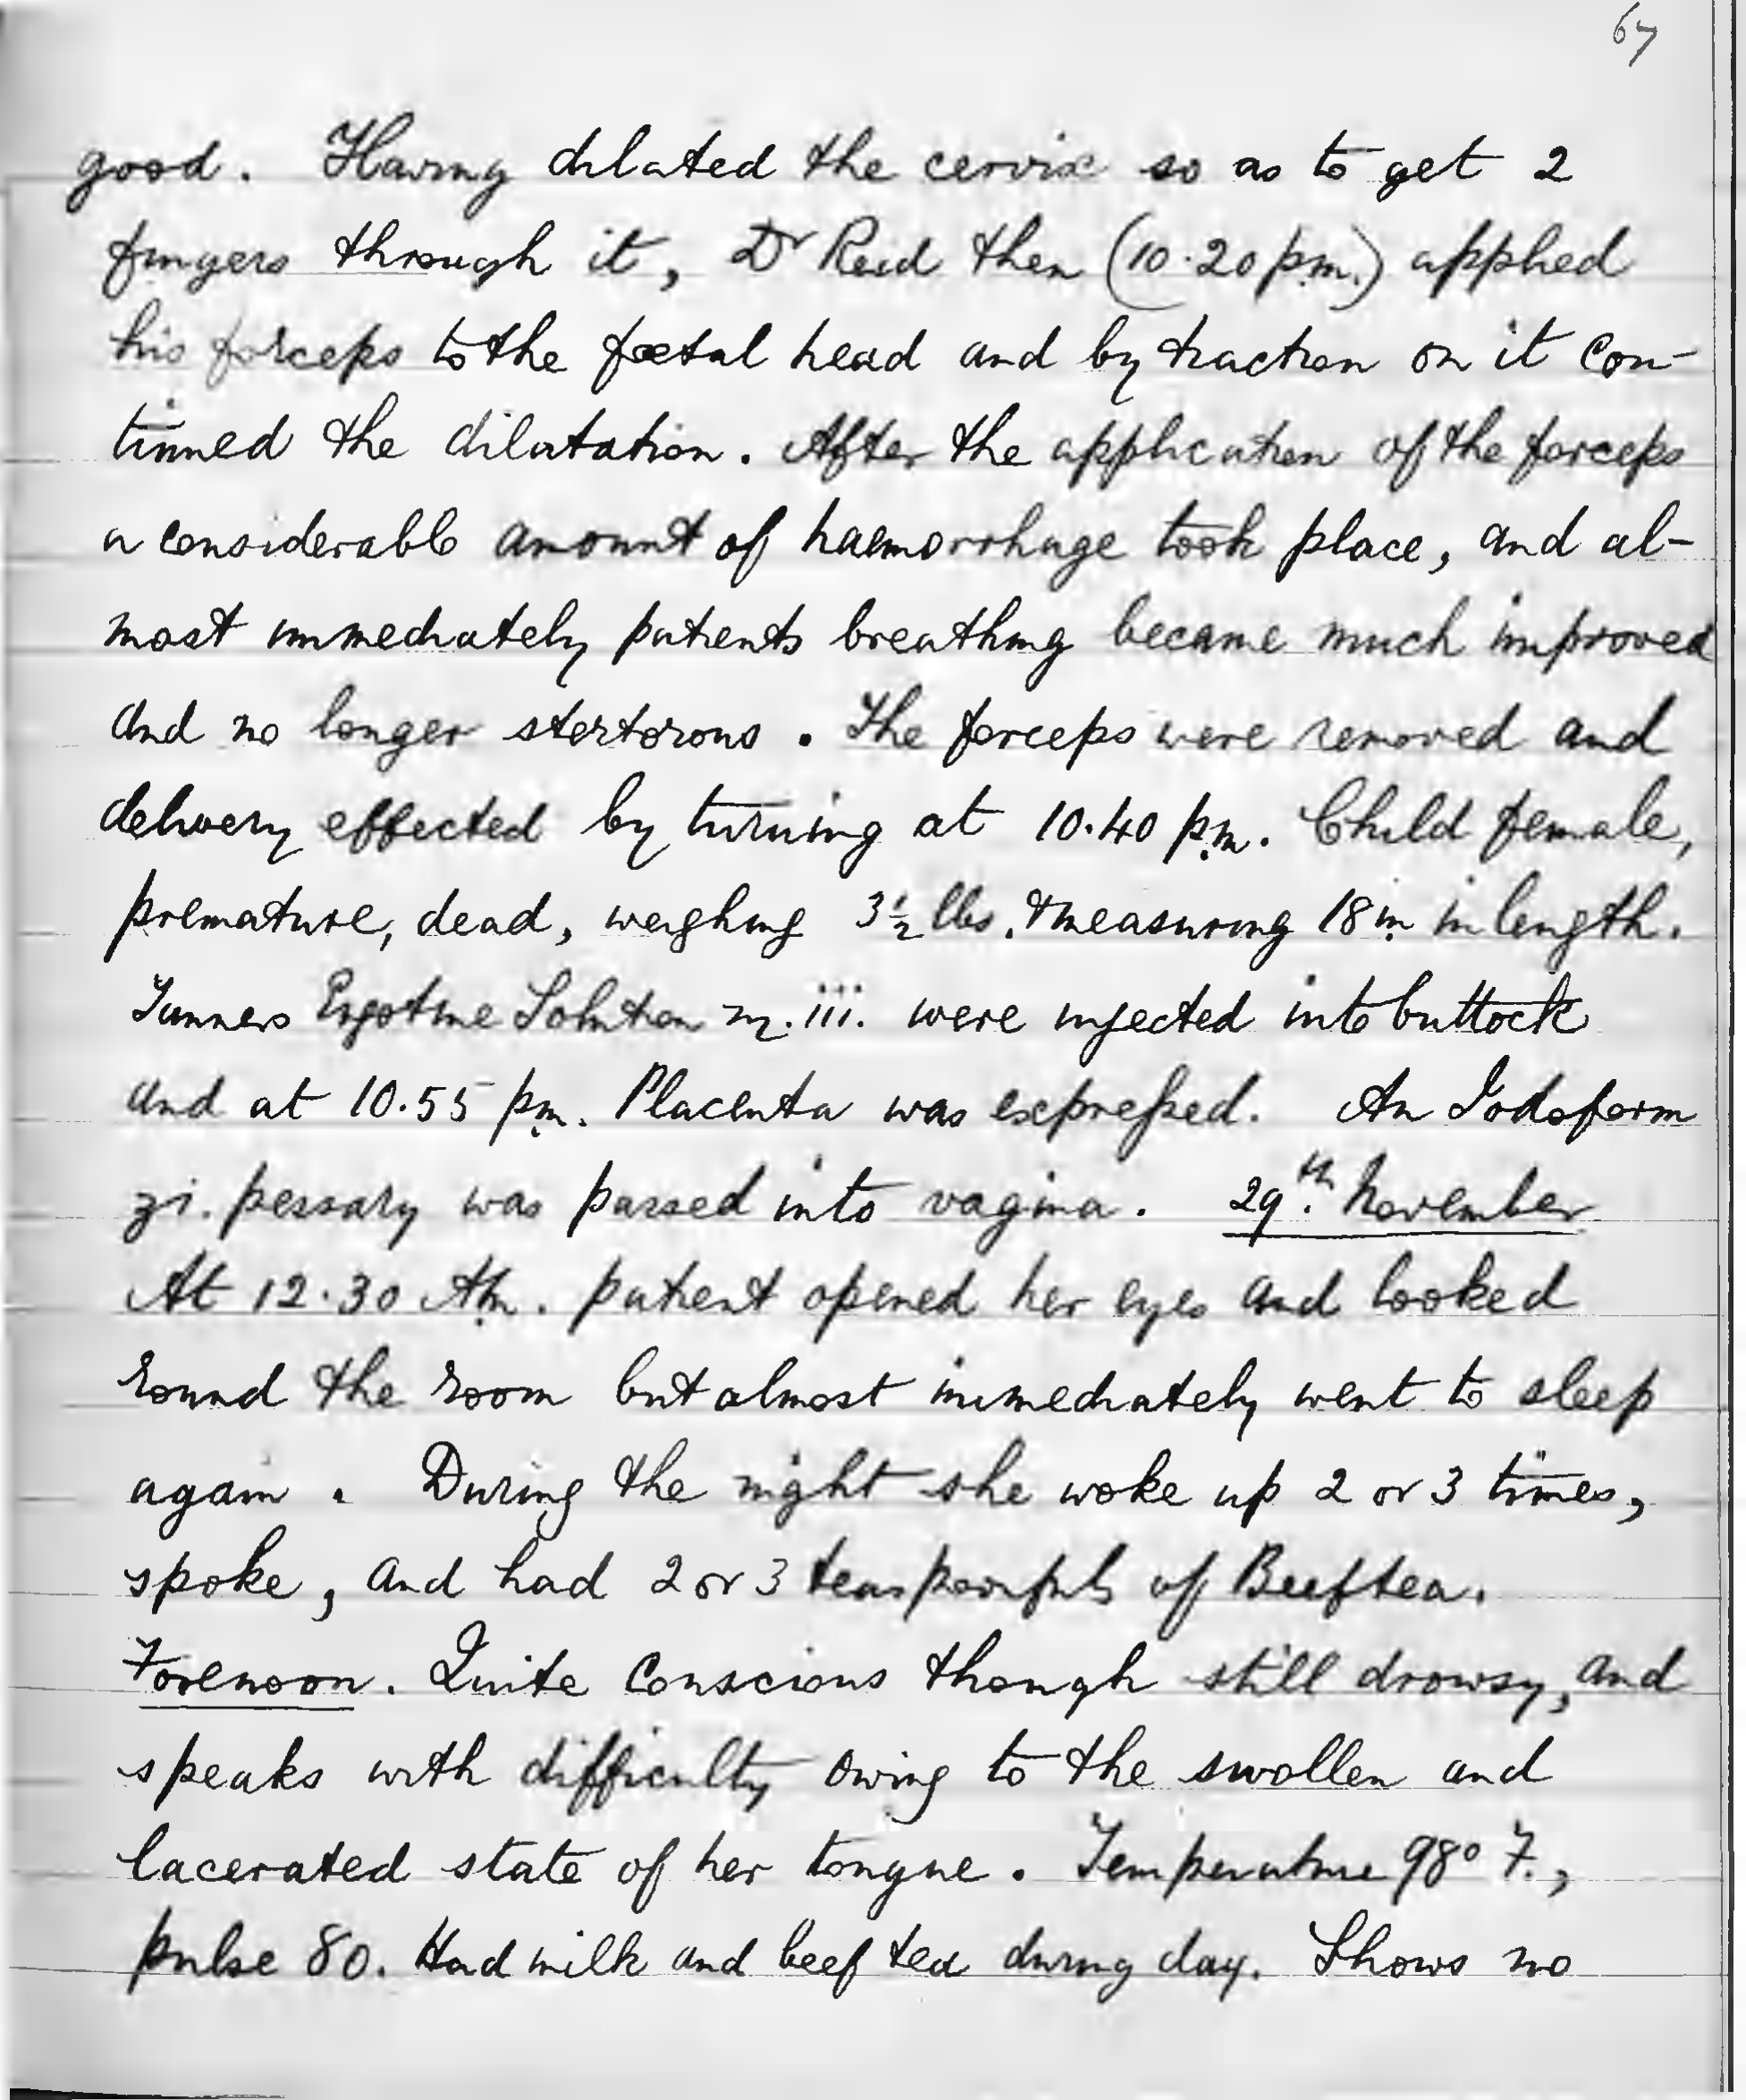 67
good. Having dilated the cervix so as to get 2
fingers through it, Dr Reid then (10.20 pm.) applied
his forceps to the foetal head and by traction on it con-
tinued the dilatation. After the application of the forceps
a considerable amount of haemorrhage took place, and al-
most immediately patients breathing became much improved
and no longer stertorous. The forceps were removed and
delivery effected by turning at 10.40 pm. Child female,
premature, dead, weighing 3½ lbs. & measuring 18 in in length.
Tanners Ergotine Solution m. iii. were injected into buttock
and at 10.55 pm. Placenta was expressed. An Iodoform
ʒi. pessary was passed into vagina. 29th. November
At 12.30 Am. patient opened her eyes and looked
round the room but almost immediately went to sleep
again. During the night she woke up 2 or 3 times,
spoke, and had 2 or 3 teaspoonfuls of Beeftea.
Forenoon. Quite Conscious though still drowsy, and
speaks with difficulty owing to the swollen and
lacerated state of her tongue. Temperature 98° F.,
pulse 80. Had milk and beef tea during day. Shows no